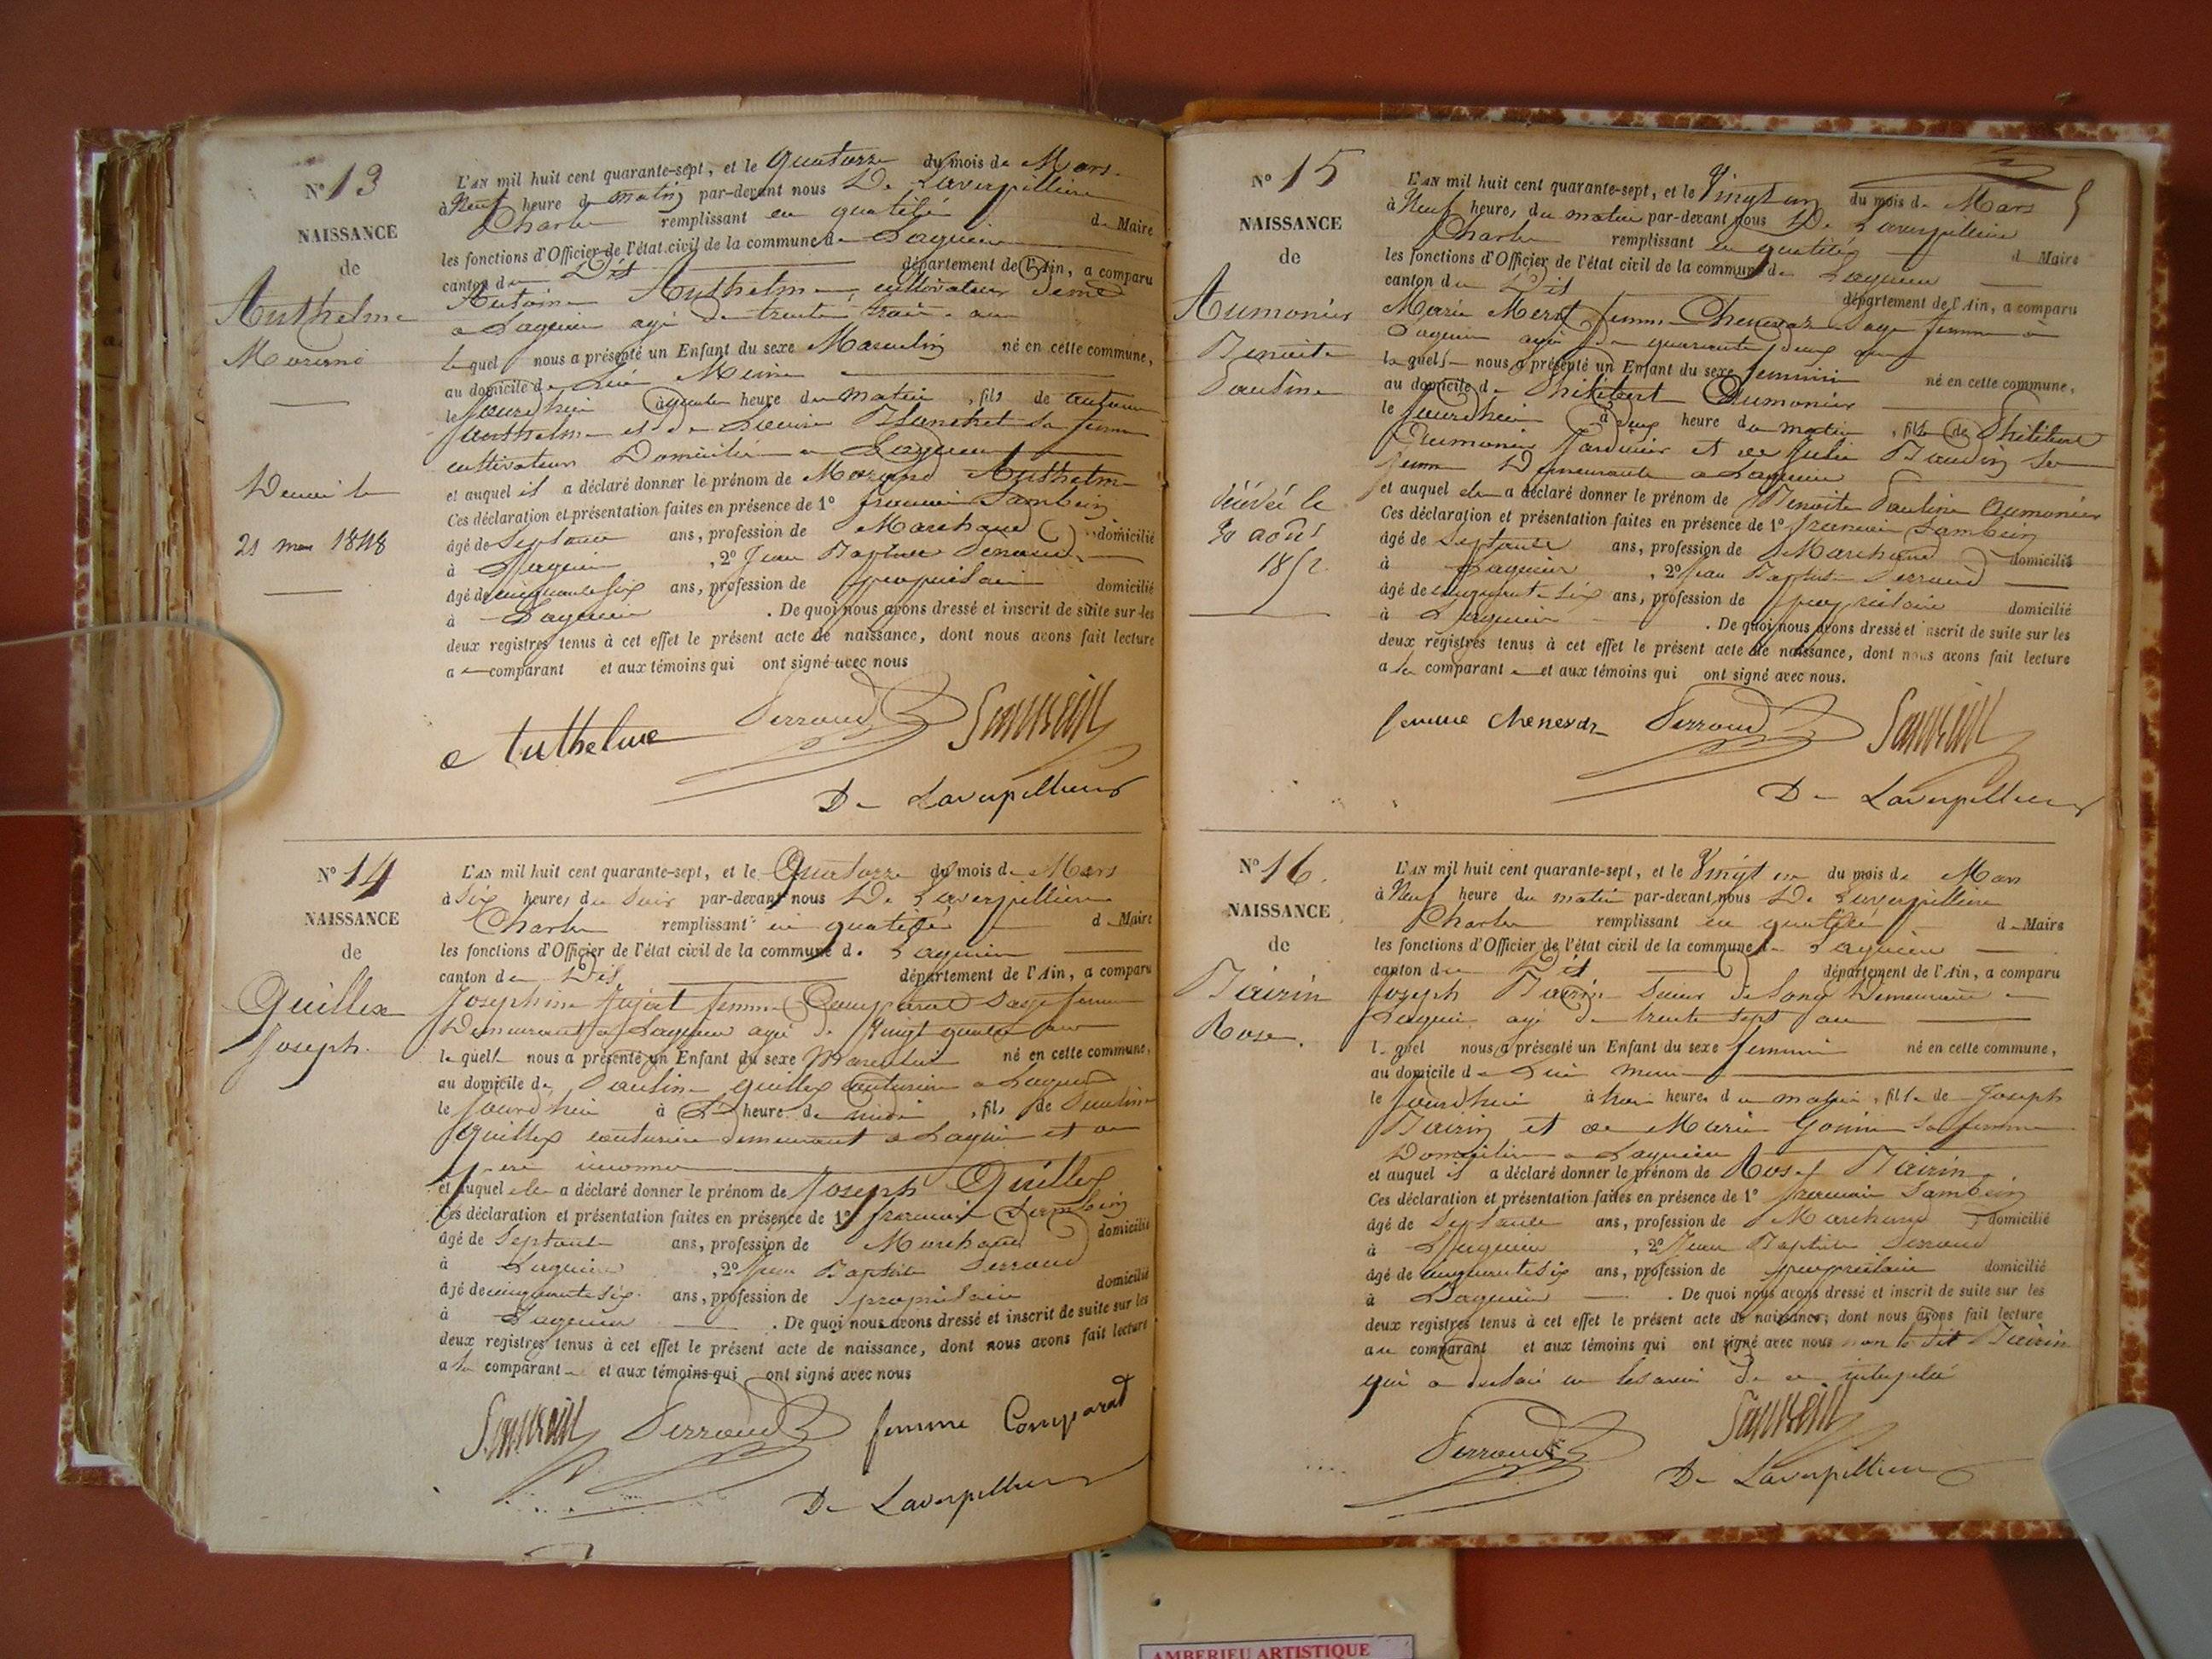 N° 13
NAISSANCE
de
Anthelme
Morand
21 mars 1848
L'AN mil huit cent quarante-sept, et le quatorze du mois de Mars
à Neuf heure du matin par-devant nous De Laverpilliere
Charles remplissant en qualité de Maire
les fonctions d'Officier de l'état civil de la commune de Lagnieu
canton du Dit département de l'Ain, a comparu
Antoine Anthelme, cultivateur
a Lagnieu agé de trente trois ans
lequel nous a présenté un Enfant du sexe Masculin né en cette commune,
au domicile de
le jourdhui à quatre heure du matin, fils de antoine
anthelme et de Blanchet sa femme
cultivateurs Domiciliés a Lagnieu
et auquel il a déclaré donner le prénom de Morand Anthelme
Ces déclaration et présentation faites en présence de 1° françois Sambein
âgé de Septante ans, profession de Marchand domicilié
à Lagnieu, 2° Jean Baptiste Perraud
âgé de cinquante six ans, profession de propriétaire domicilié
à Lagnieu. De quoi nous avons dressé et inscrit de suite sur les
deux registres tenus à cet effet le présent acte de naissance, dont nous avons fait lecture
a comparant et aux témoins qui ont signé avec nous
Anthelme Perraud Sambein
De Laverpilliere
N° 14
NAISSANCE
de
Quillex
Joseph.
L'AN mil huit cent quarante-sept, et le Quatorze du mois de Mars
à Six heures du Soir par-devant nous De Laverpilliere
Charles remplissant en qualité de Maire
les fonctions d'Officier de l'état civil de la commune de Lagnieu
canton du Dit département de l'Ain, a comparu
Josephine femme Comparat Sage femme
Demeurant a Lagnieu agé de Vingt quatre ans
le quelle nous a présenté un Enfant du sexe Masculin né en cette commune,
au domicile de Pauline Quillex couturière a Lagnieu
le jourdhui à heure de midi, fils de Pauline
Quillex couturière demeurant a Lagnieu et de
père inconnu
et auquel elle a déclaré donner le prénom de Joseph Quillex
Ces déclaration et présentation faites en présence de 1° françois Sambein
âgé de Septante ans, profession de Marchand domicilié
à Lagnieu, 2° Jean Baptiste Perraud
âgé de cinquante six ans, profession de propriétaire domicilié
à Lagnieu. De quoi nous avons dressé et inscrit de suite sur les
deux registres tenus à cet effet le présent acte de naissance, dont nous avons fait lecture
a la comparante et aux témoins qui ont signé avec nous
Sambein Perraud femme Comparat
De Laverpilliere
N° 15
NAISSANCE
de
Aumonier
Benoite
Pauline
décédée le
30 août
1852
L'AN mil huit cent quarante-sept, et le Vingt un du mois de Mars
à Neuf heures du matin par-devant nous De Laverpilliere
Charles remplissant en qualité de Maire
les fonctions d'Officier de l'état civil de la commune de Lagnieu
canton du Dit département de l'Ain, a comparu
Marie femme Chenevar Sage femme a
Lagnieu agé de quarante deux ans
laquelle nous a présenté un Enfant du sexe feminin né en cette commune,
au domicile de Philibert Aumonier
le jourdhui à deux heure du matin, fille de Philibert
Aumonier Jardinier et de Julie Baudin sa
femme Demeurante a Lagnieu
et auquel elle a déclaré donner le prénom de Benoite Pauline Aumonier
Ces déclaration et présentation faites en présence de 1° françois Sambein
âgé de Septante ans, profession de Marchand domicilié
à Lagnieu, 2° Jean Baptiste Perraud
âgé de cinquante six ans, profession de propriétaire domicilié
à Lagnieu. De quoi nous avons dressé et inscrit de suite sur les
deux registres tenus à cet effet le présent acte de naissance, dont nous avons fait lecture
a la comparante et aux témoins qui ont signé avec nous.
femme Chenevar Perraud Sambein
De Laverpilliere
N° 16.
NAISSANCE
de
Bairin
Rose.
L'AN mil huit cent quarante-sept, et le Vingt un du mois de Mars
à Neuf heure du matin par-devant nous De Laverpilliere
Charles remplissant en qualité de Maire
les fonctions d'Officier de l'état civil de la commune de Lagnieu
canton du Dit département de l'Ain, a comparu
Joseph Bairin Scieur de Long Demeurant a
Lagnieu agé de trente sept ans
lequel nous a présenté un Enfant du sexe feminin né en cette commune,
au domicile de
le jourdhui à heures du matin, fille de Joseph
Bairin et de Marie Gonin sa femme
Domiciliés a Lagnieu
et auquel il a déclaré donner le prénom de Rose Bairin
Ces déclaration et présentation faites en présence de 1° françois Sambein
âgé de Septante ans, profession de Marchand domicilié
à Lagnieu, 2° Jean Baptiste Perraud
âgé de cinquante six ans, profession de propriétaire domicilié
à Lagnieu. De quoi nous avons dressé et inscrit de suite sur les
deux registres tenus à cet effet le présent acte de naissance, dont nous avons fait lecture
au comparant et aux témoins qui ont signé avec nous non le dit Bairin
qui a de ce
Perraud Sambein
De Laverpilliere
AMBERIEU ARTISTIQUE